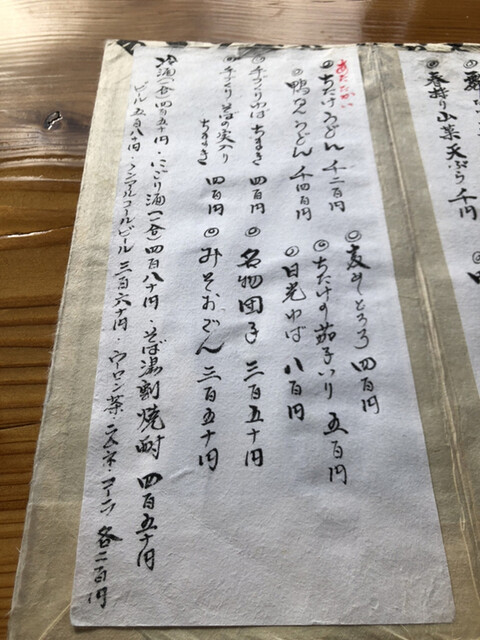 春採り山菜天ぷら 千円
あたたかい
◎ちたけうどん 千二百円
◎鴨せいろうどん 千四百円
◎手づくりゆば ちまき 四百円
◎手づくり そばの実入り
ちまき 四百円
◎麦とろろ 四百円
◎ちたけの茄子いり 五百円
◎日光ゆば 八百円
◎名物団子 三百五十円
◎みそおでん 三百五十円
酒(一合)四百五十円・にごり酒(一合)四百八十円・そば湯割焼酎 四百五十円
ビール 五百八十円・ノンアルコールビール 三百六十円・ウーロン茶・コーラ 各二百円